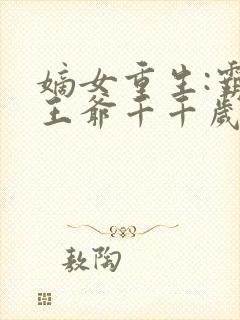 嫡女重生:霸
王爷千千岁
敖陶